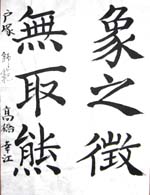 象之徴
無取熊
戸塚 高橋幸江